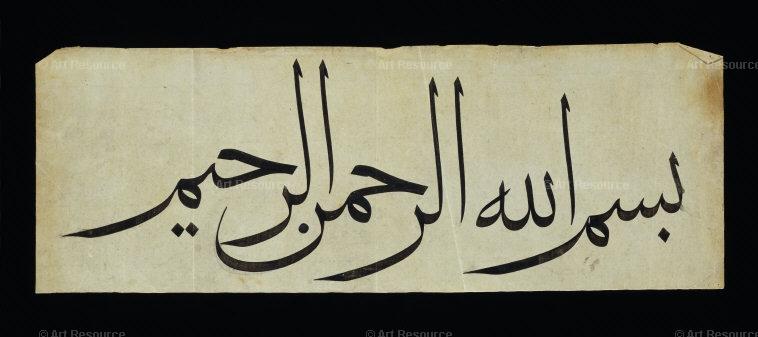 بسم الله الرحمن الرحيم
© Art Resource © Art Resource © Art Resource
© Art Resource © Art Resource © Art Resource
© Art Resource © Art Resource © Art Resource